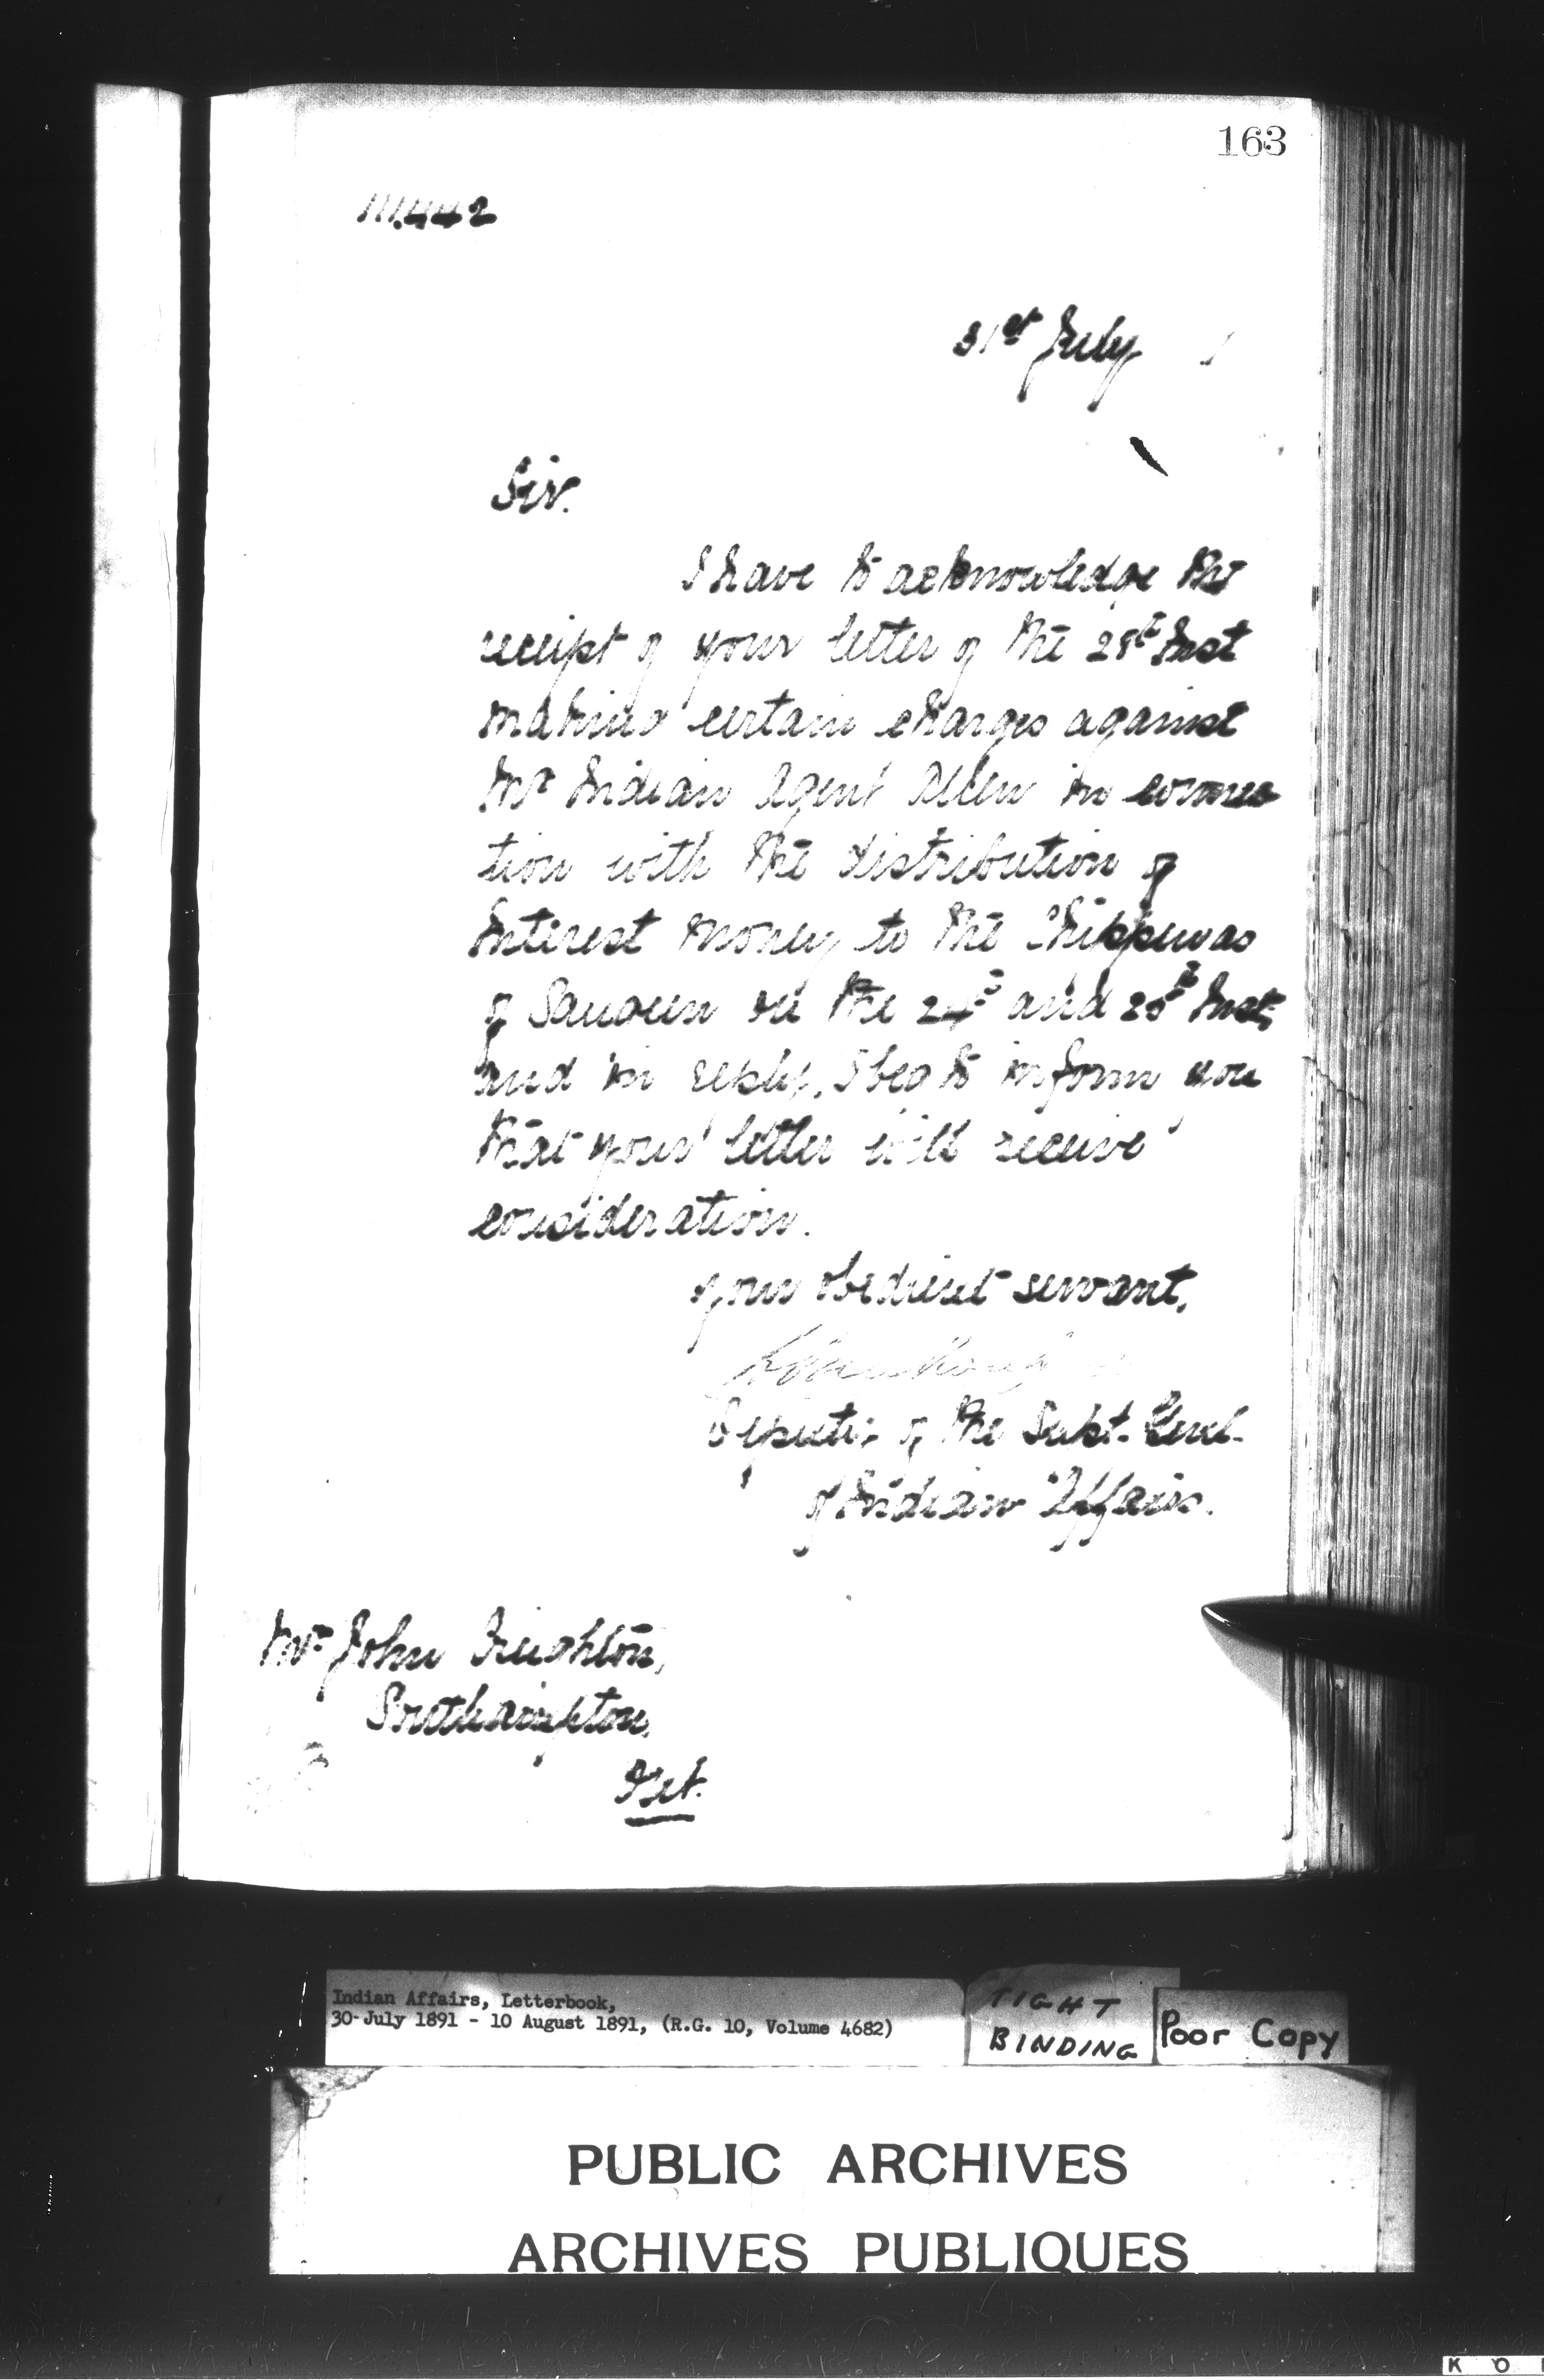 163
111.442
31st July 1
Sir.
I have to acknowledge the
receipt of your letter of the 28th Inst
making certain charges against
Mr Indian Agent Allen in connec
tion with the distribution of
Interest money to the Chippewas
of Saugeen on the 24th and 25th Inst,
and in reply, I beg to inform you
that your letter will receive
consideration.
Your obedient servant,
Deputy of the Supt. Genl.
of Indian Affairs.
Mr John Creighton,
Southampton,
Ont.
Indian Affairs, Letterbook,
30-July 1891 - 10 August 1891, (R.G. 10, Volume 4682)
TIGHT
BINDING
Poor Copy
PUBLIC ARCHIVES
ARCHIVES PUBLIQUES
K O